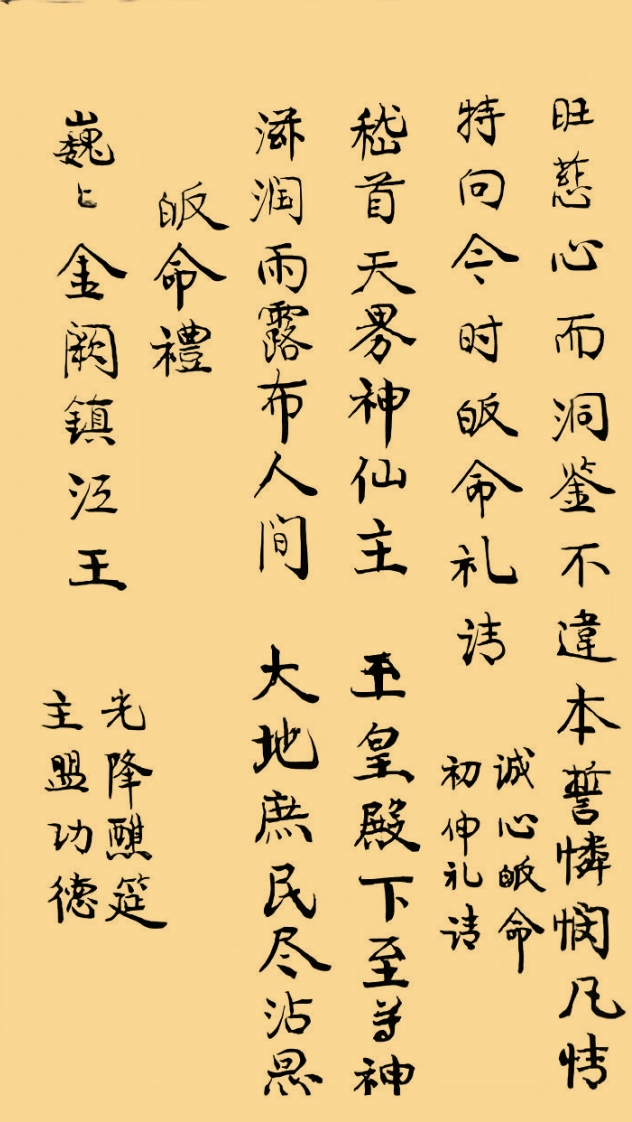 旺慈心而洞鉴不違本誓憐悯凡情
特向今时皈命礼请
诚心皈命
初伸礼请
嵇首天界神仙主 玉皇殿下至尊神
滋润雨露布人间 大地庶民尽沾恩
皈命禮
巍〻金阙鎮江王
光降醮筵
主盟功德